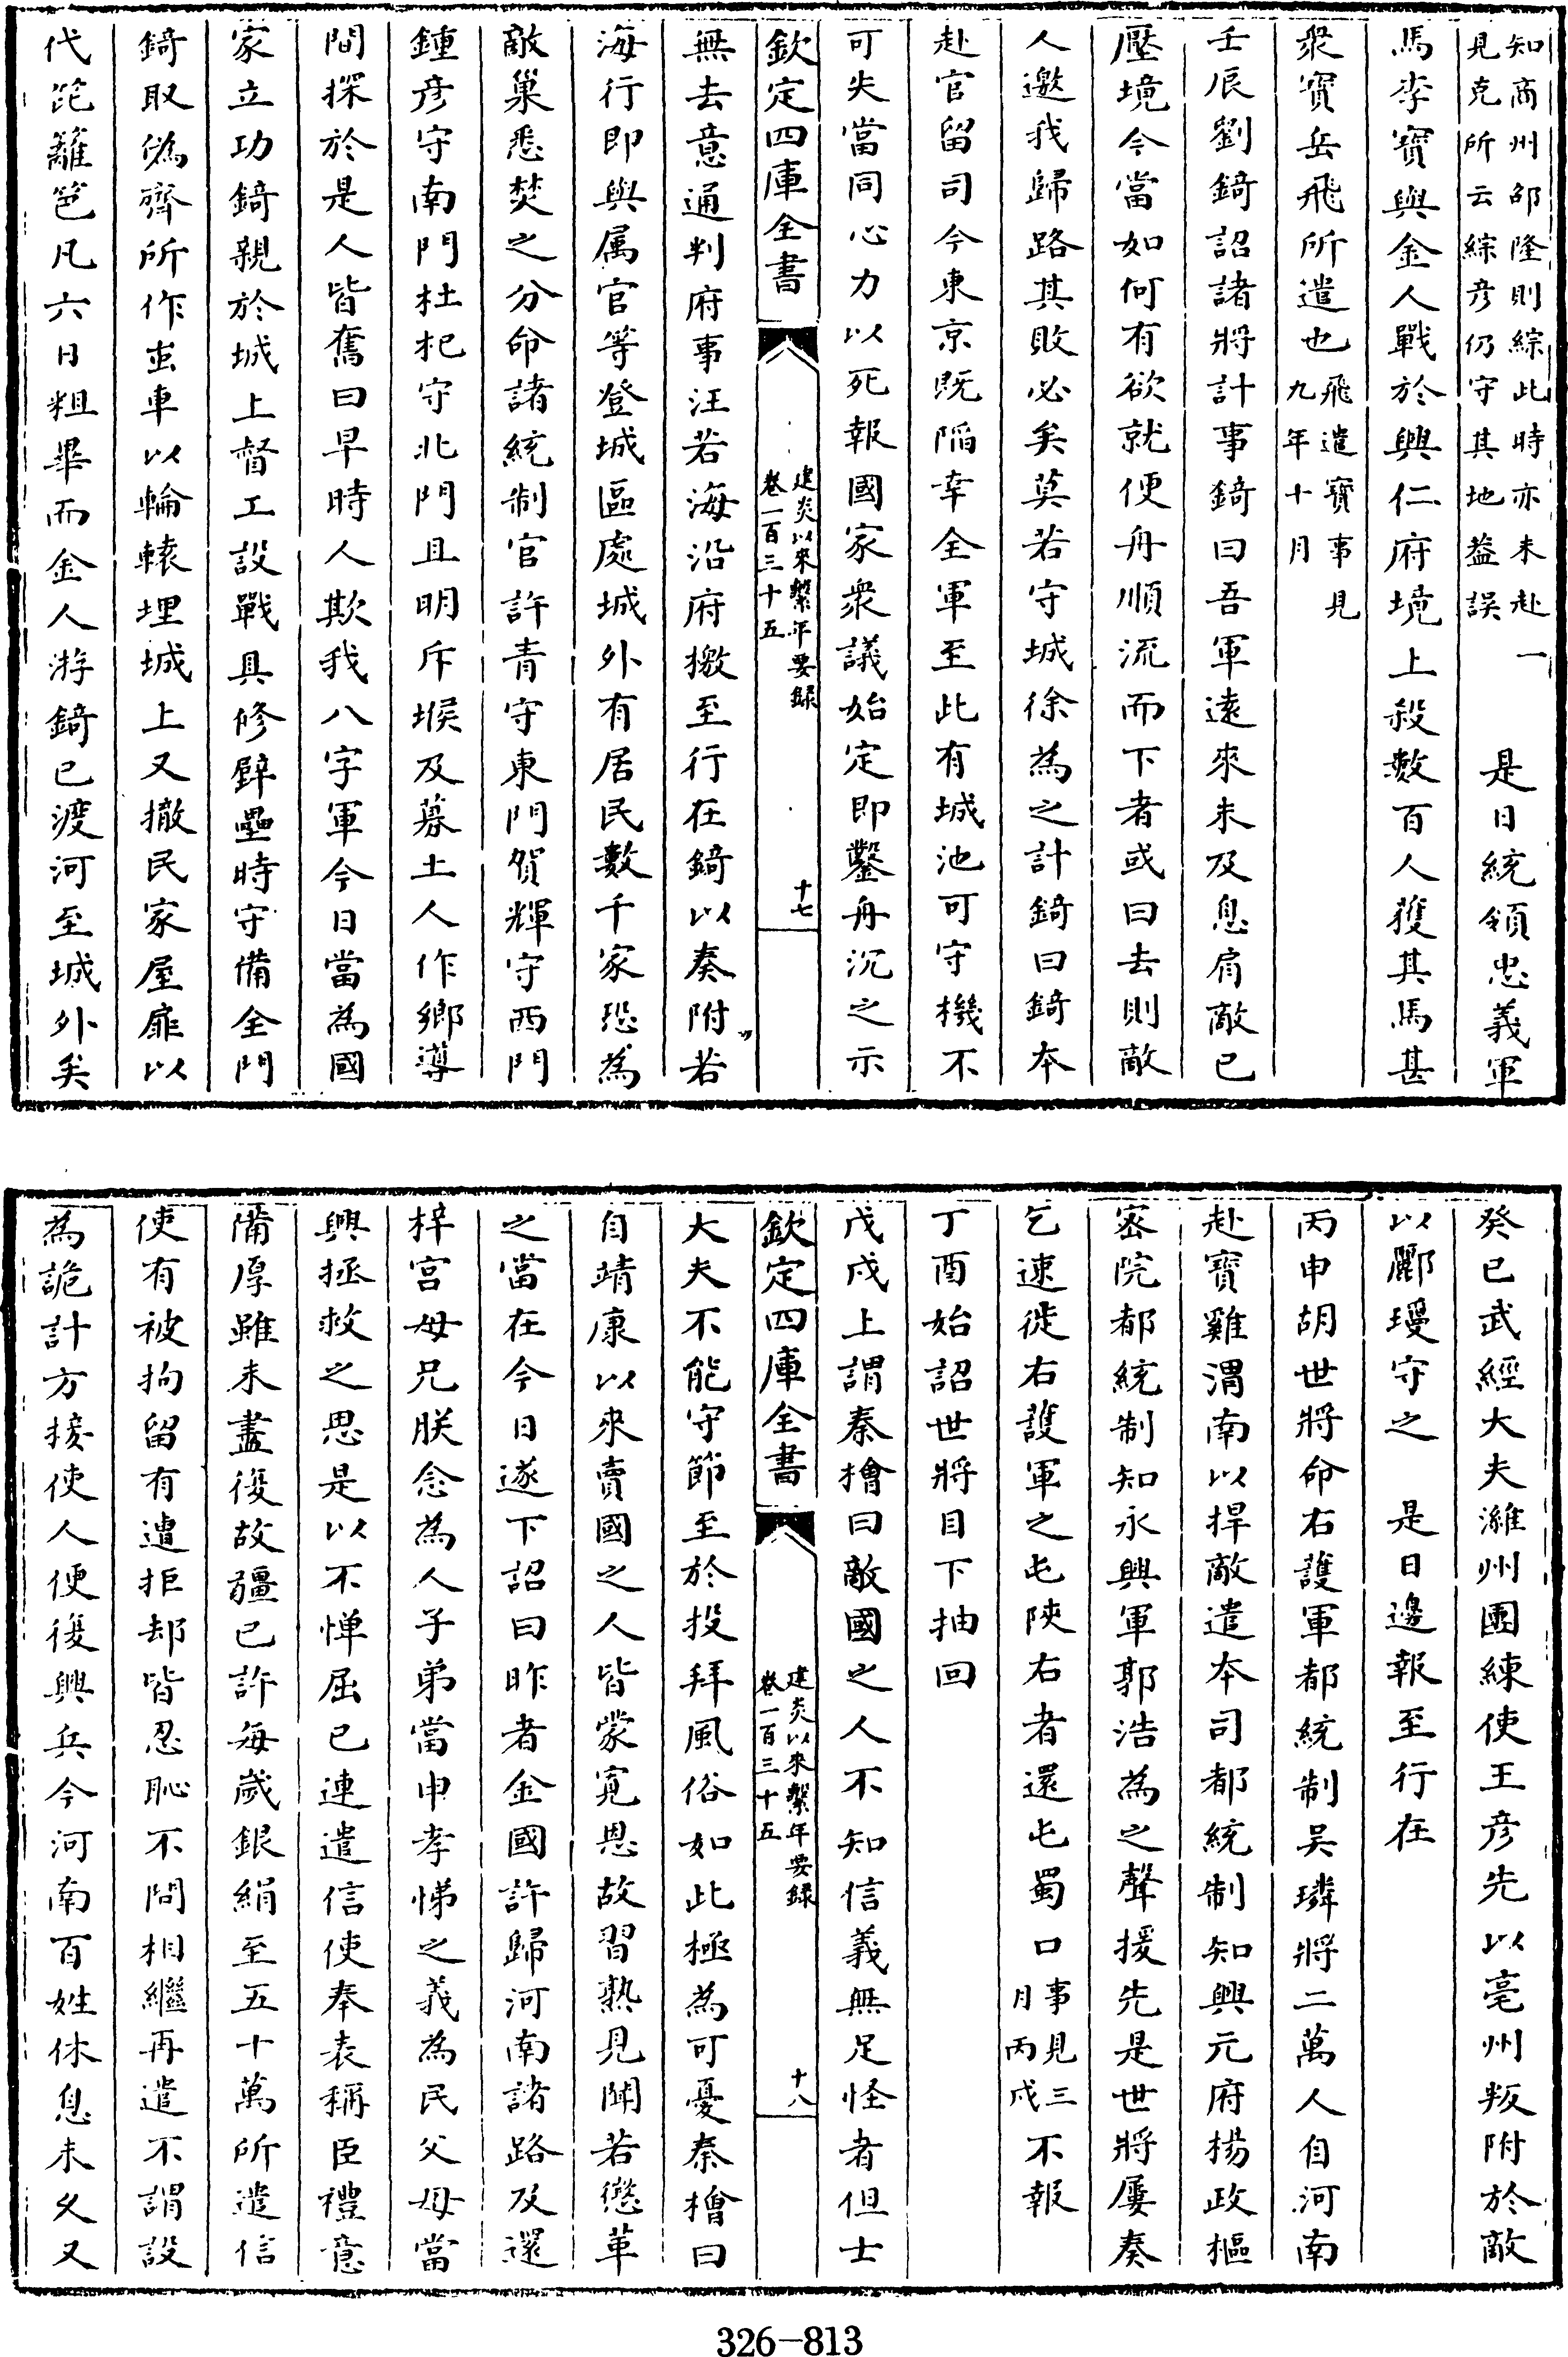 知商州邵隆則綜此時亦未赴一
見克所云綜彥仍守其地蓋誤
是日統領忠義軍
馬李寶與金人戰於興仁府境上殺數百人獲其馬甚
衆寶岳飛所遣也
飛遣寶事見
九年十月
壬辰劉錡詔諸將計事錡曰吾軍逺來未及息肩敵已
壓境今當如何有欲就便舟順流而下者或曰去則敵
人邀我歸路其敗必矣莫若守城徐為之計錡曰錡本
赴官留司今東京既䧟幸全軍至此有城池可守機不
可失當同心力以死報國家衆議始定即鑿舟沉之示
欽定四庫全書
建炎以來繫年要録
卷一百三十五
十七
無去意通判府事汪若海沿府檄至行在錡以奏附若
海行即與属官等登城區處城外有居民數千家恐為
敵巢悉焚之分命諸統制官許青守東門賀輝守西門
鍾彦守南門杜杞守北門且明斥堠及募土人作鄉導
間探於是人皆奮曰早時人欺我八字軍今日當為國
家立功錡親於城上督工設戰具修壁壘時守備全門
錡取偽齊所作蚩車以輪轅埋城上又撤民家屋扉以
代笓籬笆凡六日粗畢而金人游錡已渡河至城外矣
癸巳武經大夫濰州團練使王彦先以亳州叛附於敵
以酈瓊守之
是日邊報至行在
丙申胡世將命右護軍都統制吴璘將二萬人自河南
赴寶雞渭南以捍敵遣本司都統制知興元府楊政樞
密院都統制知永興軍郭浩為之聲援先是世將屢奏
乞速徙右護軍之屯陜右者還屯蜀口
事見三
月丙戌
不報
丁酉始詔世將目下抽回
戊戌上謂秦檜曰敵國之人不知信義無足怪者但士
欽定四庫全書
建炎以來繫年要録
卷一百三十五
十八
大夫不能守節至於投拜風俗如此極為可憂秦檜曰
自靖康以來賣國之人皆蒙寛恩故習熟見聞若懲革
之當在今日遂下詔曰昨者金國許歸河南諸路及還
梓宫母兄朕念為人子弟當申孝悌之義為民父母當
興拯救之思是以不憚屈已連遣信使奉表稱臣禮意
備厚雖未盡復故疆已許每歳銀絹至五十萬所遣信
使有被拘留有遣拒却皆忍恥不問相繼再遣不謂設
為詭計方接使人便復興兵今河南百姓休息未乆又
326-813